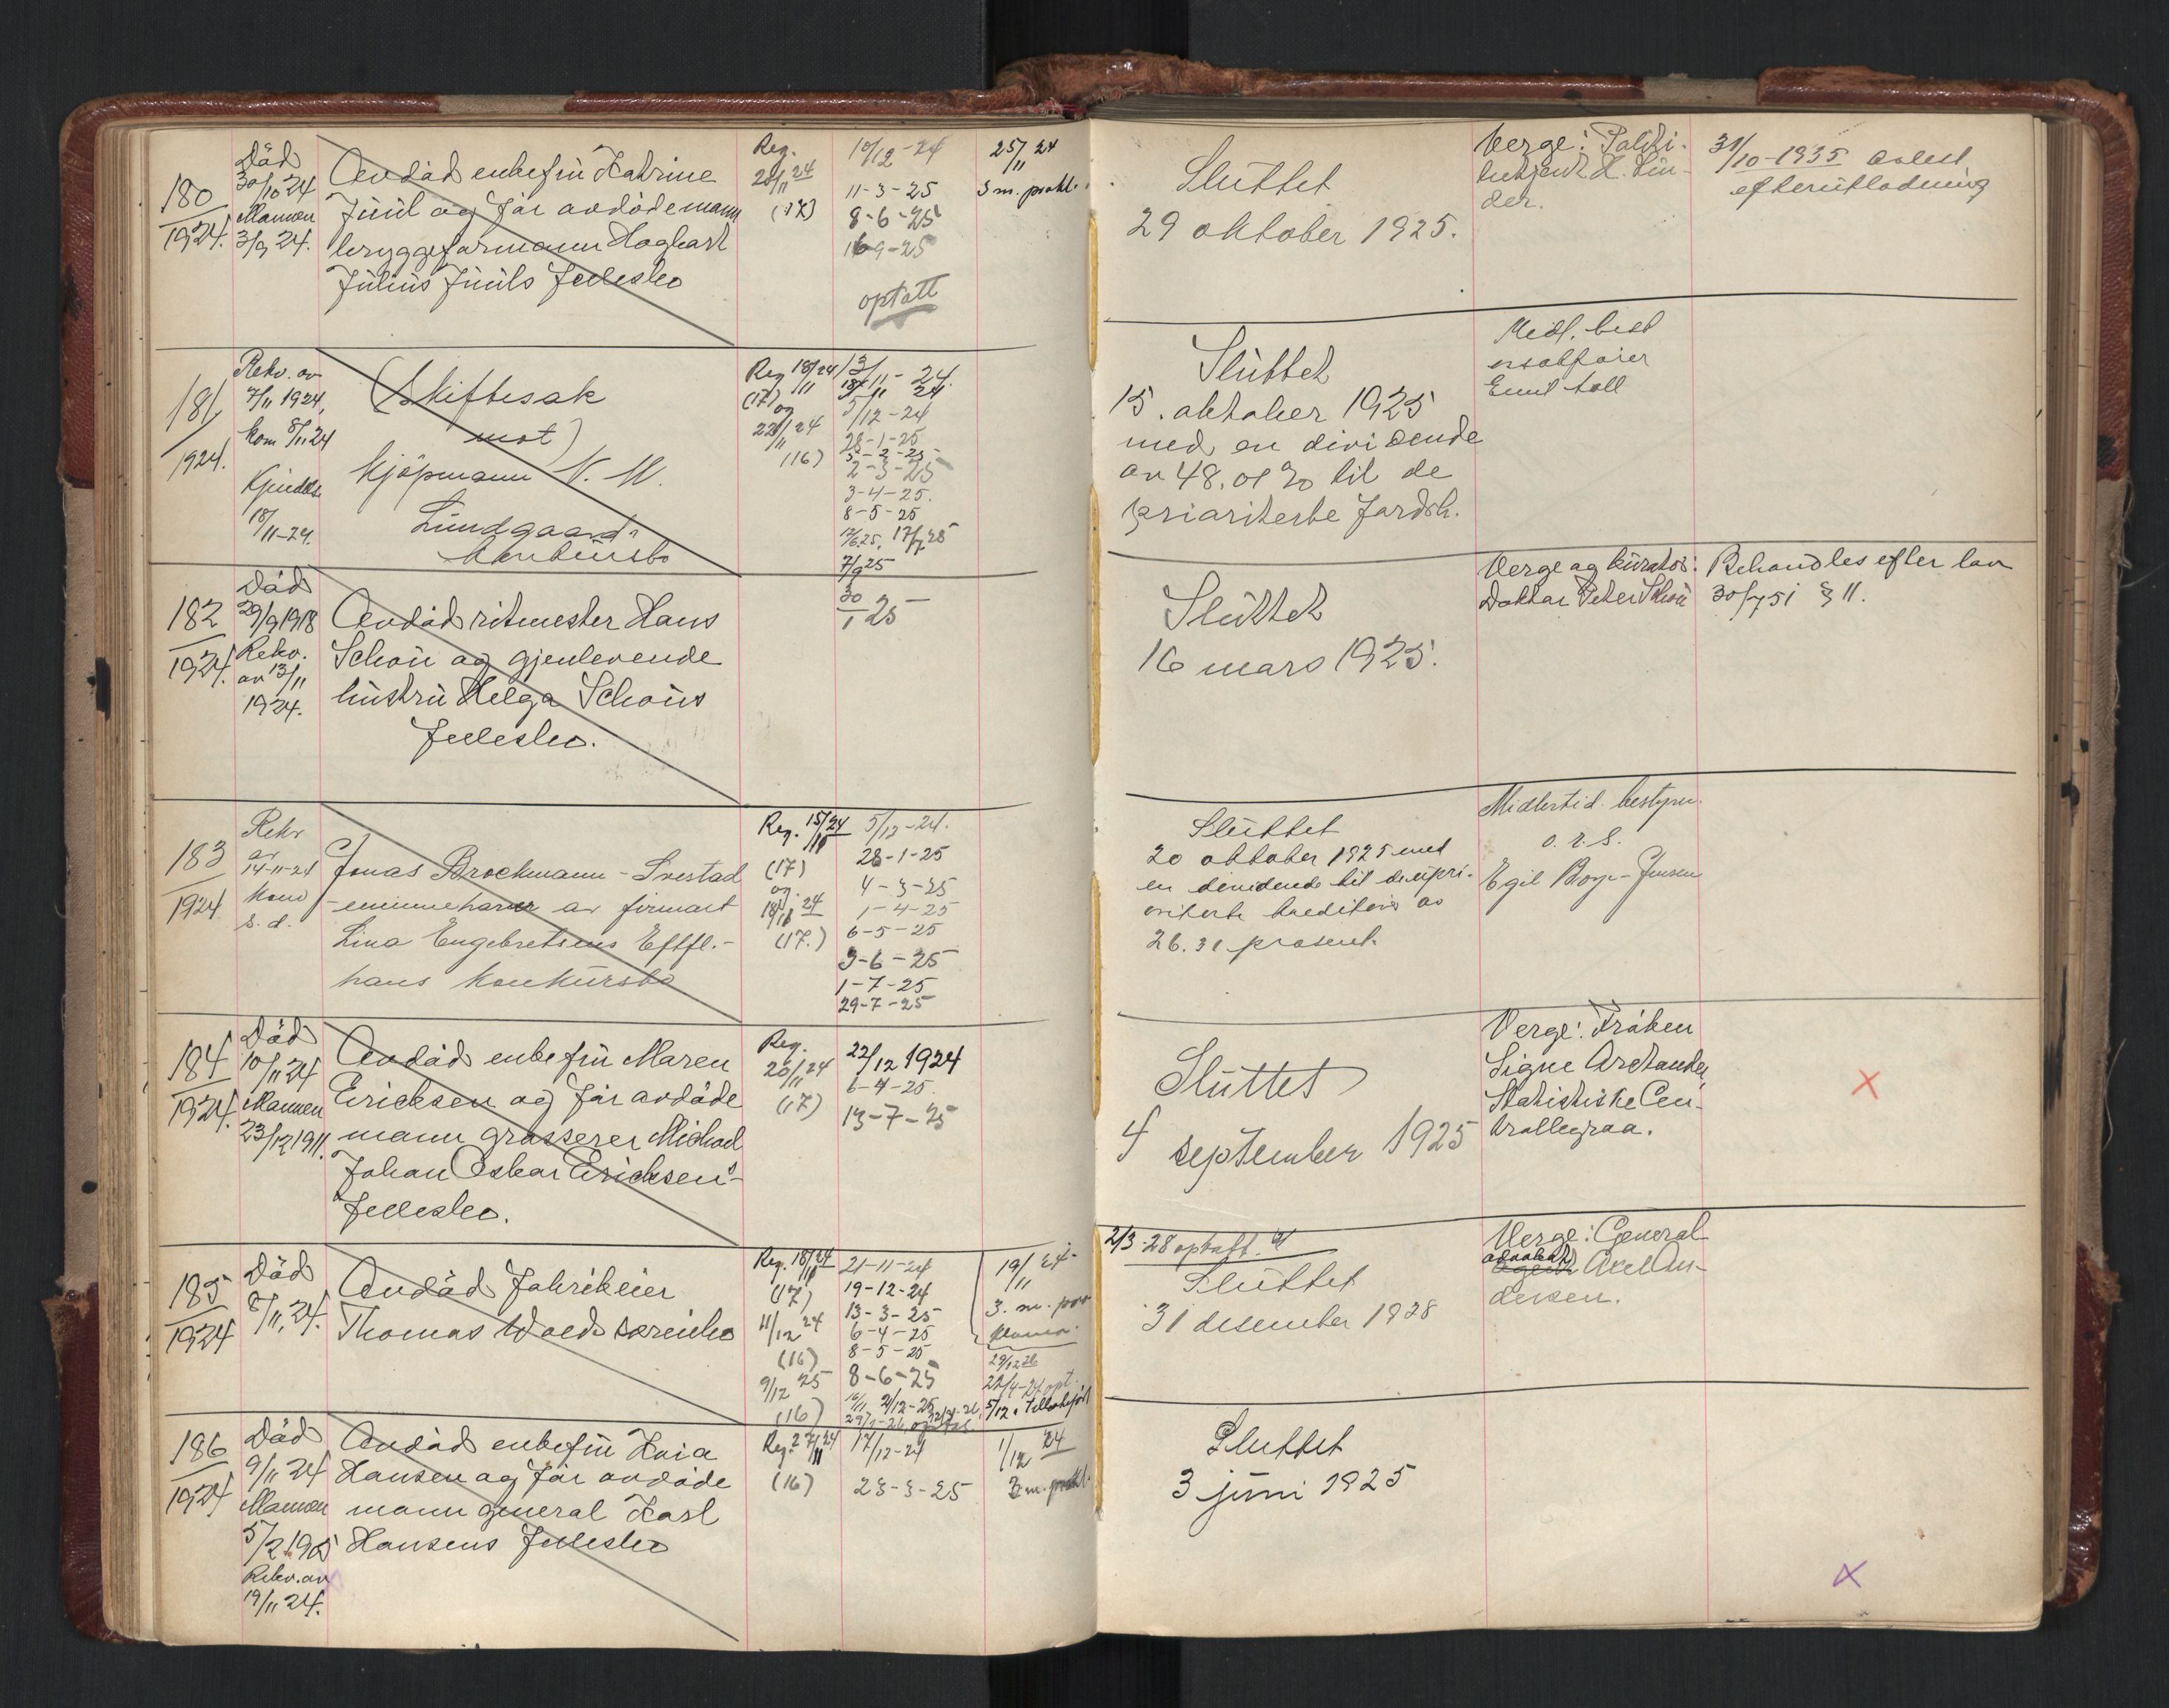 180
1924.
Död
30/10 24
Mannen
3/9 24.
Avdöd enkefru Katrine
Juul og før avdöde mann
bryggeformann Hagbart
Julius Juuls fellesbo
Reg.
28/11 24
(17)
10/12-24
11-3-25
8-6-25
16-9-25
optatt
25/11 24
3 m. prokl.
Sluttet
29 oktober 1925.
Verge: Politi-
betjent H. Lin-
der.
31/10-1935 avlest
efterutlodning
181
1924.
Rekv. av
7/11 1924,
kom 8/11 24
Kjendels
18/11-24.
(Skiftesak
mot)
Kjöpmann N. M.
Lundgaards
konkursbo
Reg 18/11 24
(17)
og
22/11 24
(16)
13/11-24.
18/11 24
5/12-24
28-1-25
5-2-25
2-3-25
3-4-25.
8-5-25
17/7 25
7/9 25
Sluttet
15. oktober 1925
med en dividende
av 48.01 % til de
prioriterte fordr.
Midl. best
Emil Moll
182
1924.
Död
29/9 1918
Rekv.
av 13/11
1924.
Avdöd ritmester Hans
Schou og gjenlevende
hustru Helga Schous
fellesbo.
30/1 25
Sluttet
16 mars 1925.
Verge og kurator:
Doktor Peter Schou
Behandles efter lov
30/7 51 § 11.
183
1924
Rekv
av
14-11-24
kom
s. d.
Jonas Brockmann-Svestad
-eneinnehaver av firmaet
Lina Engebretsens Eftfl.-
hans konkursbo
Reg. 15/11 24
(17)
og
18/11 24
(17.)
5/12-24.
28-1-25
4-3-25
1-4-25
6-5-25
3-6-25
1-7-25
29-7-25
Sluttet
20 oktober 1925 med
en dividende til de upri-
oriterte kreditorer av
26.31 prosent.
Midlertid. bestyrer
o. r. s.
Egil Borge-Jensen
184
1924.
Död
10/11 24
Mannen
23/12 1911.
Avdöd enkefru Maren
Ericksen og før avdöde
mann grosserer Michael
Johan Oskar Ericksen's
fellesbo.
Reg.
26/11 24
(17)
22/12 1924
6-4-25.
13-7-25
Sluttet
4 september 1925
Verge: Fröken
Signe Arctander,
Statistiske Cen-
tralbyraa.
185
1924
Död
8/11, 24.
Avdöd fabrikeier
Thomas Woeds særeiebo
Reg. 18/11 24
(17)
11/12 24
(16)
9/12 25
(16)
21-11-24
19-12-24
13-3-25
6-4-25
8-5-25
8-6-25
19/11 24.
3. m. pro
klama.
2/3-28 optatt.
Sluttet
31 desember 1928
Verge: General
advokat Axel An-
dersen.
186
1924
Död
9/11 24
Mannen
5/2 1905
Rekv. av
19/11 24.
Avdöd enkefru Kaia
Hansen og før avdöde
mann general Karl
Hansens fellesbo
Reg. 27/11 24
(16)
17/12-24
23-3-25
1/12 24
3 m. prokl.
Sluttet
3 juni 1925